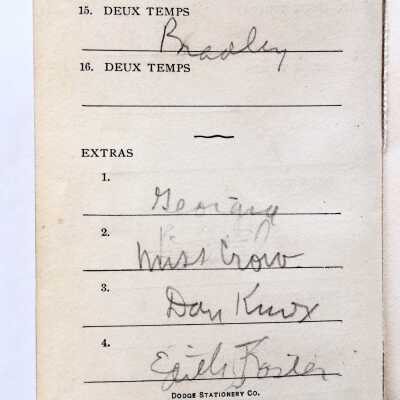 15. DEUX TEMPS
Bradley
16. DEUX TEMPS
EXTRAS
1.
Georgia
2.
Miss Crow
3.
Dan Knox
4.
Edith Foster
DODGE STATIONERY CO.